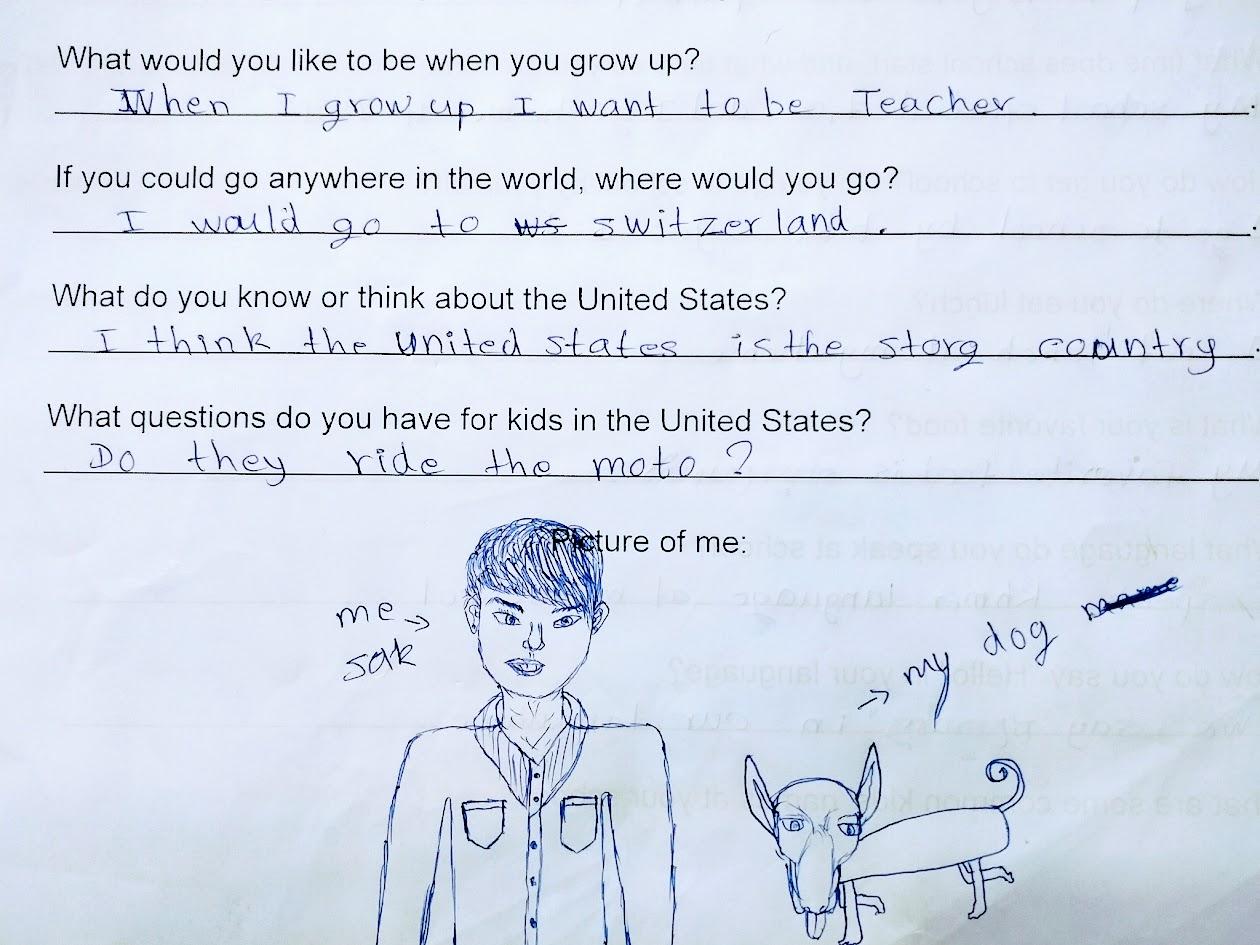 What would you like to be when you grow up?
When I grow up I want to be Teacher.
If you could go anywhere in the world, where would you go?
I would go to switzerland.
What do you know or think about the United States?
I think the united states is the storg country
What questions do you have for kids in the United States?
Do they ride the moto?
Picture of me:
me →
sak
→ my dog